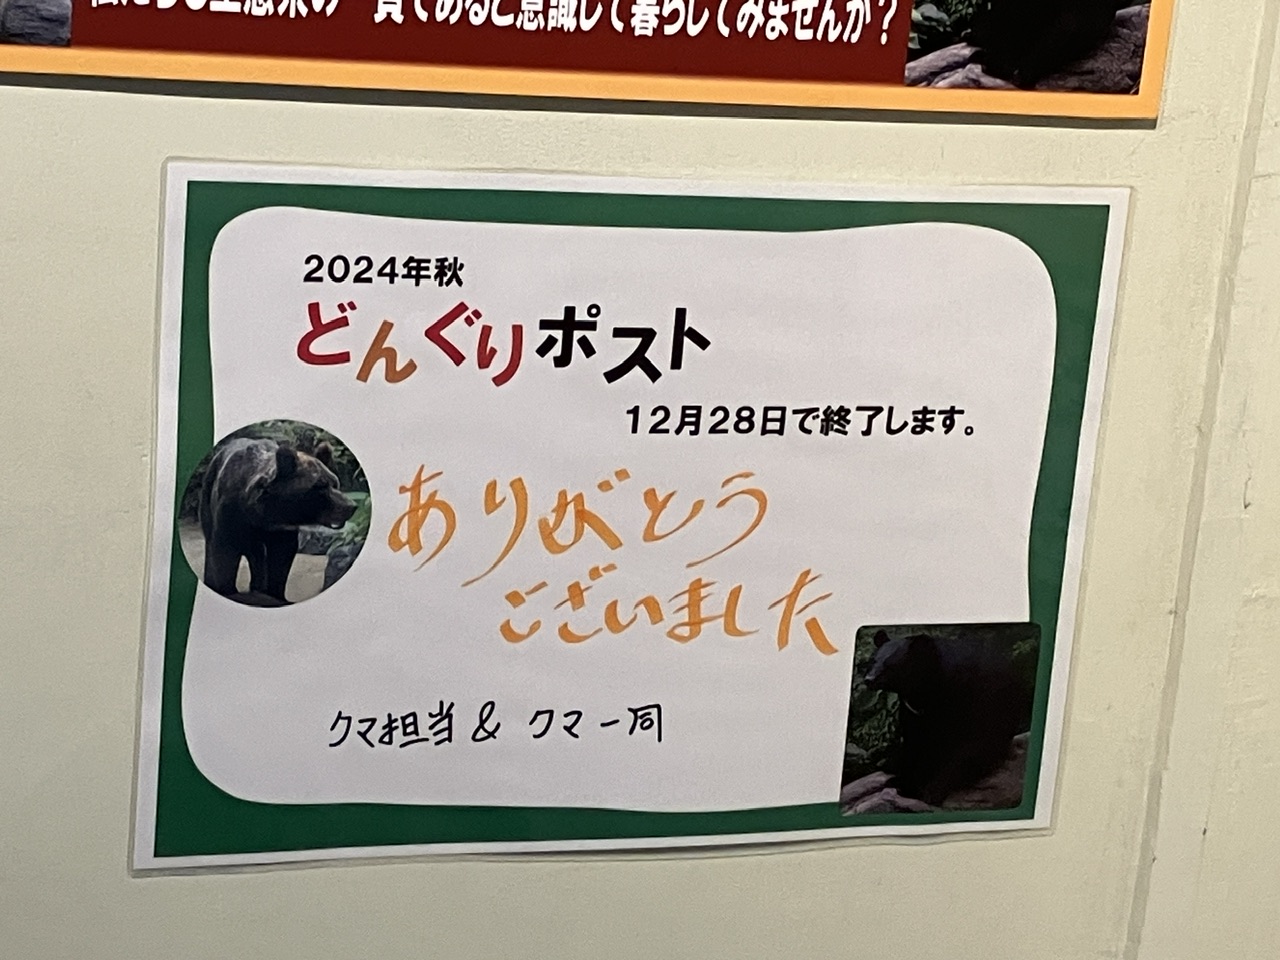 生態系の一員であると意識して暮らしてみませんか?
2024年秋
どんぐりポスト
12月28日で終了します。
ありがとう
ございました
クマ担当 & クマ一同